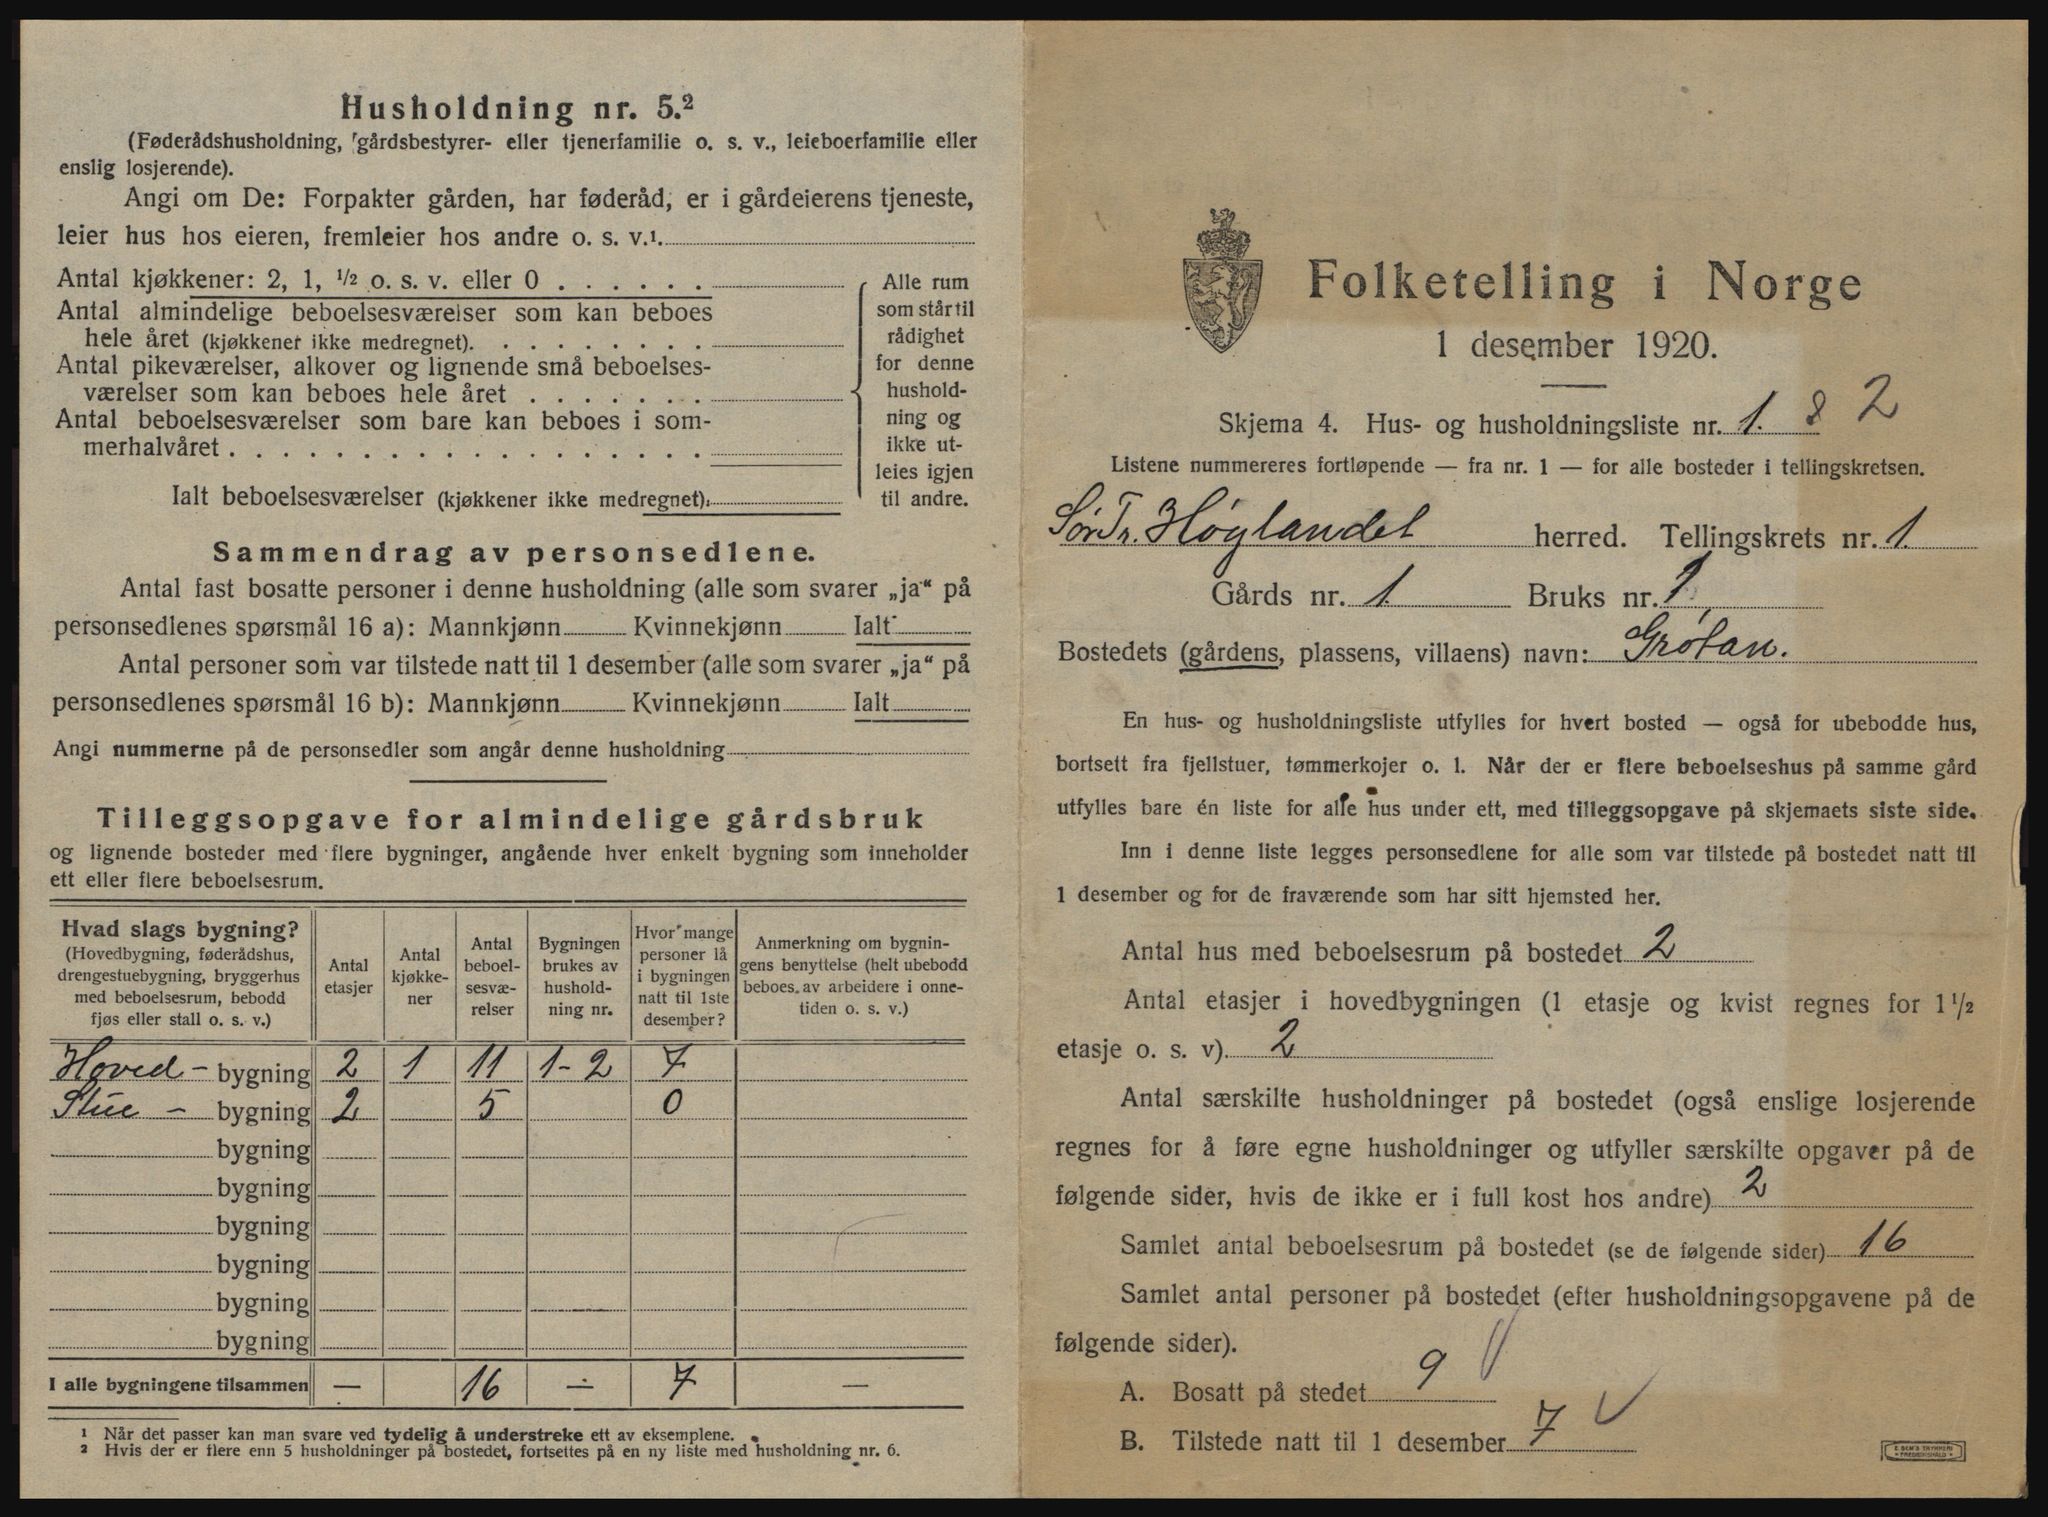 Husholdning nr. 5.²
(Føderådshusholdning, gårdsbestyrer- eller tjenerfamilie o. s. v., leieboerfamilie eller
enslig losjerende).
Angi om De: Forpakter gården, har føderåd, er i gårdeierens tjeneste,
leier hus hos eieren, fremleier hos andre o. s. v.¹
Antal kjøkkener: 2, 1, ½ o. s. v. eller 0
Antal almindelige beboelsesværelser som kan beboes
hele året (kjøkkener ikke medregnet).
Antal pikeværelser, alkover og lignende små beboelses-
værelser som kan beboes hele året
Antal beboelsesværelser som bare kan beboes i som-
merhalvåret
Ialt beboelsesværelser (kjøkkener ikke medregnet):
Alle rum
som står til
rådighet
for denne
hushold-
ning og
ikke ut-
leies igjen
til andre.
Sammendrag av personsedlene.
Antal fast bosatte personer i denne husholdning (alle som svarer „ja“ på
personsedlenes spørsmål 16 a): Mannkjønn Kvinnekjønn Ialt
Antal personer som var tilstede natt til 1 desember (alle som svarer „ja“ på
personsedlenes spørsmål 16 b): Mannkjønn Kvinnekjønn Ialt
Angi nummerne på de personsedler som angår denne husholdning
Tilleggsopgave for almindelige gårdsbruk
og lignende bosteder med flere bygninger, angående hver enkelt bygning som inneholder
ett eller flere beboelsesrum.
Hvad slags bygning?
(Hovedbygning, føderådshus,
drengestuebygning, bryggerhus
med beboelsesrum, bebodd
fjøs eller stall o. s. v.)
Antal
etasjer
Antal
kjøkke-
ner
Antal
beboel-
sesvæ-
relser
Bygningen
brukes av
hushold-
ning nr.
Hvor mange
personer lå
i bygningen
natt til 1ste
desember?
Anmerkning om bygnin-
gens benyttelse (helt ubebodd
beboes av arbeidere i onne-
tiden o. s. v.)
Hoved - bygning 2 1 11 1-2 7
Stue - bygning 2 5 0
bygning
bygning
bygning
bygning
bygning
bygning
I alle bygningene tilsammen — 16 — 7 —
¹ Når det passer kan man svare ved tydelig å understreke ett av eksemplene.
² Hvis der er flere enn 5 husholdninger på bostedet, fortsettes på en ny liste med husholdning nr. 6.
Folketelling i Norge
1 desember 1920.
Skjema 4. Hus- og husholdningsliste nr. 1. & 2
Listene nummereres fortløpende — fra nr. 1 — for alle bosteder i tellingskretsen.
Sør Tr. Høylandet herred. Tellingskrets nr. 1.
Gårds nr. 1. Bruks nr. 1,
Bostedets (gårdens, plassens, villaens) navn: Grøtan.
En hus- og husholdningsliste utfylles for hvert bosted — også for ubebodde hus,
bortsett fra fjellstuer, tømmerkojer o. l. Når der er flere beboelseshus på samme gård
utfylles bare én liste for alle hus under ett, med tilleggsopgave på skjemaets siste side.
Inn i denne liste legges personsedlene for alle som var tilstede på bostedet natt til
1 desember og for de fraværende som har sitt hjemsted her.
Antal hus med beboelsesrum på bostedet 2
Antal etasjer i hovedbygningen (1 etasje og kvist regnes for 1½
etasje o. s. v). 2
Antal særskilte husholdninger på bostedet (også enslige losjerende
regnes for å føre egne husholdninger og utfyller særskilte opgaver på de
følgende sider, hvis de ikke er i full kost hos andre) 2
Samlet antal beboelsesrum på bostedet (se de følgende sider) 16
Samlet antal personer på bostedet (efter husholdningsopgavene på de
følgende sider).
A. Bosatt på stedet 9
B. Tilstede natt til 1 desember 7
E. SEM'S TRYKKERI
FREDRIKSHALD